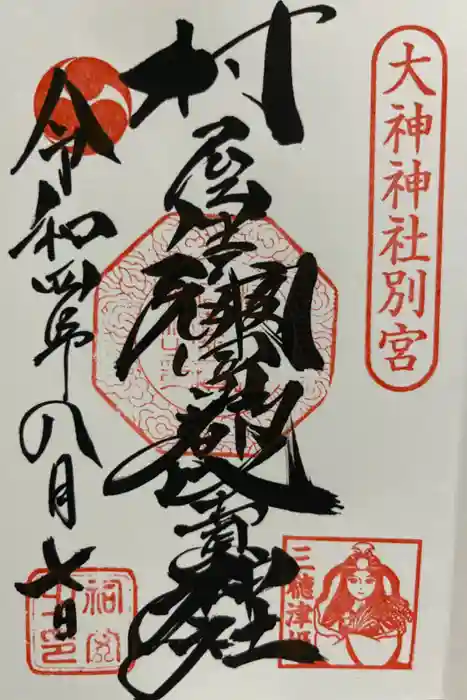 大神神社別宮
村屋坐彌冨都比賣神社
令和四年八月七日
三穂津姫